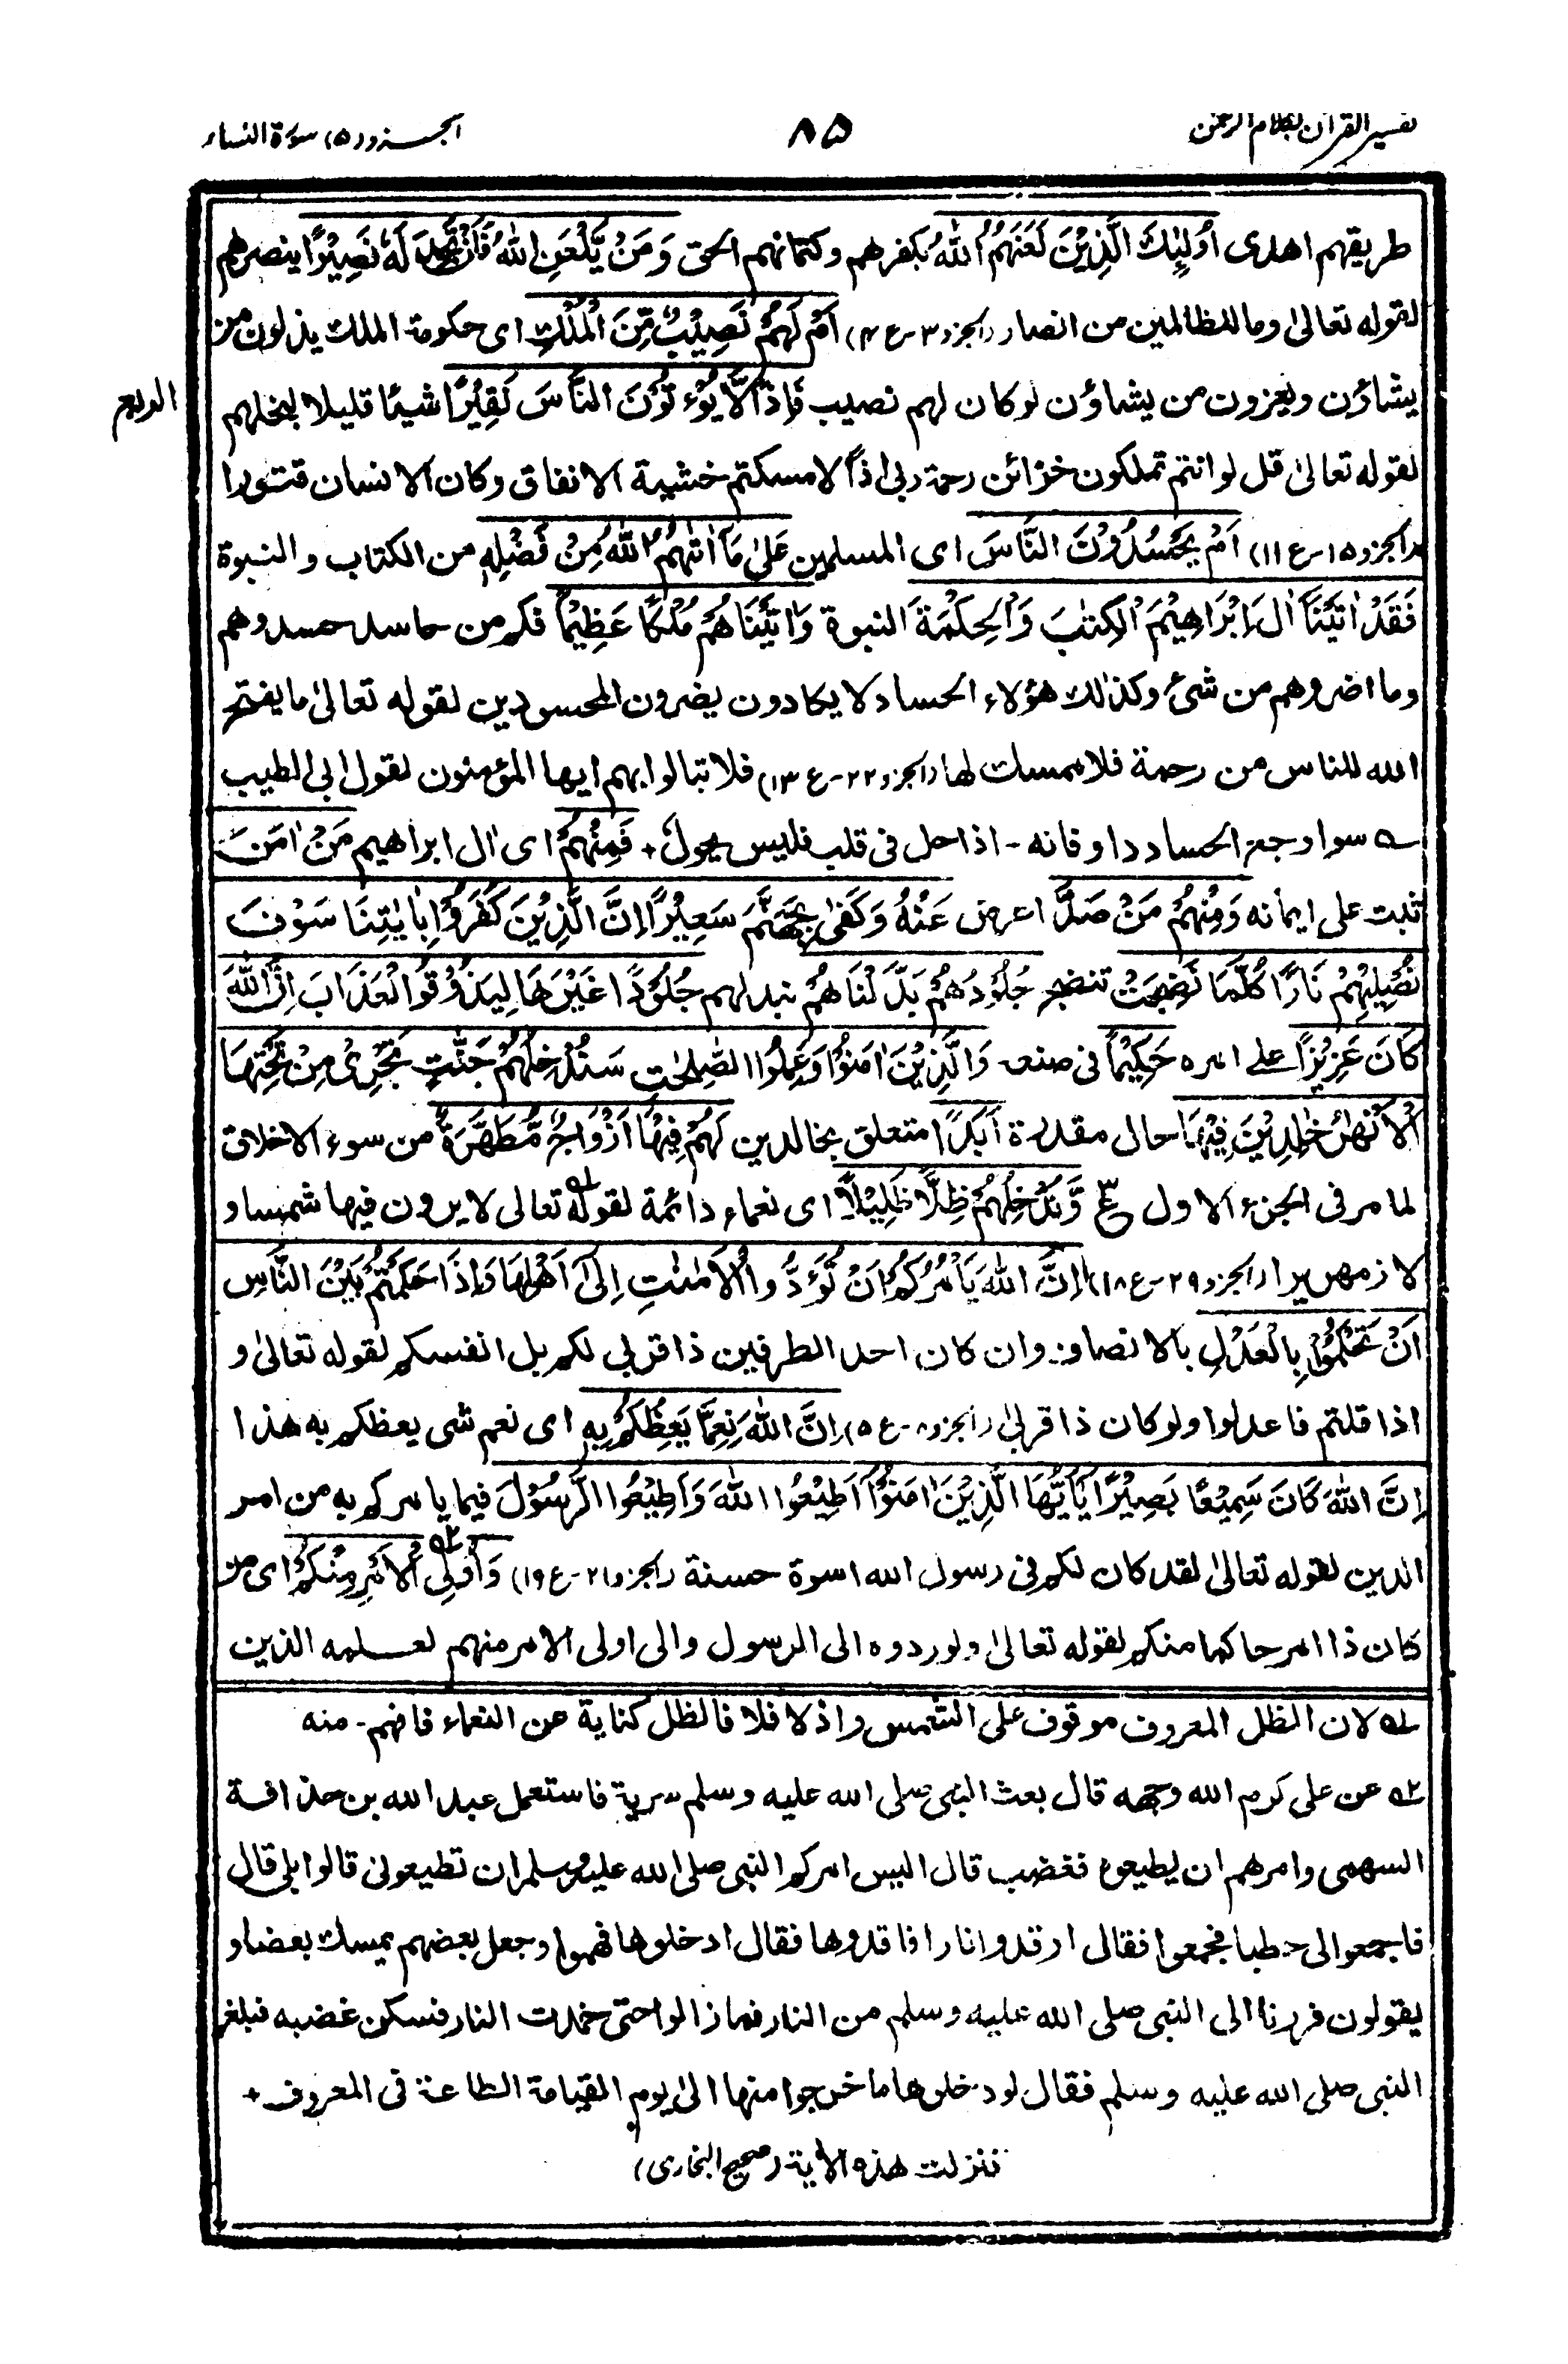 تفسير القران بكلام الرحمن
٨٥
الجزو (٥) سورة النساء
طريقهم اهدى اُولٰٓئِكَ الَّذِيْنَ لَعَنَهُمُ اللّٰهُ بكفرهم وكتمانهم الحق وَمَنْ يَّلْعَنِ اللّٰهُ فَلَنْ تَجِدَ لَهٗ نَصِيْرًا ينصرهم
لقوله تعالىٰ وما للظالمين من انصار (الجزو ٣-ع ٤) اَمْ لَهُمْ نَصِيْبٌ مِّنَ الْمُلْكِ اى حكومة الملك يذلون من
يشاؤن ويعزون من يشاؤن لو كان لهم نصيب فَاِذًا لَّا يُؤْتُوْنَ النَّاسَ نَقِيْرًا شيئا قليلا لبخلهم
الربع
لقوله تعالىٰ قل لو انتم تملكون خزائن رحمة ربى اذًا لامسكتم خشية الانفاق وكان الانسان قتورا
(الجزو ١٥-ع ١١) اَمْ يَحْسُدُوْنَ النَّاسَ اى المسلمين عَلٰى مَآ اٰتٰهُمُ اللّٰهُ مِنْ فَضْلِهٖ من الكتاب والنبوة
فَقَدْ اٰتَيْنَآ اٰلَ اِبْرَاهِيْمَ الْكِتٰبَ وَالْحِكْمَةَ النبوة وَاٰتَيْنَاهُمْ مُلْكًا عَظِيْمًا فكم من حاسد حسدوهم
وما اضروهم من شئ وكذلك هؤلاء الحساد لا يكادون يضرون المحسودين لقوله تعالىٰ ما يفتح
الله للناس من رحمة فلا ممسك لها (الجزو ٢٢-ع ١٣) فلا تبالوا بهم ايها المؤمنون لقول ابى الطيب
؎ سوا وجع الحساد داو فانه - اذا حل فى قلب فليس يحول + فَمِنْهُمْ اى اٰل ابراهيم مَنْ اٰمَنَ
ثبت على ايمانه وَمِنْهُمْ مَنْ صَدَّ اعرض عَنْهُ وَكَفٰى بِجَهَنَّمَ سَعِيْرًا اِنَّ الَّذِيْنَ كَفَرُوْا بِاٰيٰتِنَا سَوْفَ
نُصْلِيْهِمْ نَارًا كُلَّمَا نَضِجَتْ تنضج جُلُوْدُهُمْ بَدَّلْنَاهُمْ نبدلهم جُلُوْدًا غَيْرَهَا لِيَذُوْقُوا الْعَذَابَ اِنَّ اللّٰهَ
كَانَ عَزِيْزًا على امره حَكِيْمًا فى صنعه وَالَّذِيْنَ اٰمَنُوْا وَعَمِلُوا الصّٰلِحٰتِ سَنُدْخِلُهُمْ جَنّٰتٍ تَجْرِىْ مِنْ تَحْتِهَا
الْاَنْهٰرُ خٰلِدِيْنَ فِيْهَا حال مقدرة اَبَدًا متعلق بخالدين لَهُمْ فِيْهَا اَزْوَاجٌ مُّطَهَّرَةٌ من سوء الاخلاق
لما مر فى الجزء الاول ع٣ وَّنُدْخِلُهُمْ ظِلًّا ظَلِيْلًا اى نعماء دائمة لقوله؎١ تعالى لا يرون فيها شمسا و
لا زمهريرا (الجزو ٢٩-ع ١٨) اِنَّ اللّٰهَ يَأْمُرُكُمْ اَنْ تُؤَدُّوا الْاَمٰنٰتِ اِلٰٓى اَهْلِهَا وَاِذَا حَكَمْتُمْ بَيْنَ النَّاسِ
اَنْ تَحْكُمُوْا بِالْعَدْلِ بالانصاف وان كان احد الطرفين ذا قربى لكم بل انفسكم لقوله تعالىٰ و
اذا قلتم فاعدلوا ولو كان ذا قربىٰ (الجزو ٨-ع ٥) اِنَّ اللّٰهَ نِعِمَّا يَعِظُكُمْ بِهٖ اى نعم شى يعظكم به هذا
اِنَّ اللّٰهَ كَانَ سَمِيْعًا بَصِيْرًا يٰٓاَيُّهَا الَّذِيْنَ اٰمَنُوْٓا اَطِيْعُوا اللّٰهَ وَاَطِيْعُوا الرَّسُوْلَ فيما يامركم به من امر
الدين لقوله تعالىٰ لقد كان لكم فى رسول الله اسوة حسنة (الجزو ٢١-ع ١٩) وَاُولِى؎٢ الْاَمْرِ مِنْكُمْ اى من
كان ذا امر حاكما منكم لقوله تعالىٰ ولو ردوه الى الرسول والى اولى الامر منهم لعلمه الذين
؎١ لان الظل المعروف موقوف على الشمس واذ لا فلا فالظل كناية عن النعماء فافهم - منه
؎٢ عن على كرم الله وجهه قال بعث النبى صلى الله عليه وسلم سرية فاستعمل عبد الله بن حذافة
السهمى وامرهم ان يطيعوه فغضب قال اليس امركم النبى صلى الله عليه وسلم ان تطيعونى قالوا بلى قال
فاجمعوا لى حطبا فجمعوا فقال اوقدوا نارا فاقدوها فقال ادخلوها فهموا وجعل بعضهم يمسك بعضا و
يقولون فررنا الى النبى صلى الله عليه وسلم من النار فما زالوا حتى خمدت النار فسكن غضبه فبلغ
النبى صلى الله عليه وسلم فقال لو دخلوها ما خرجوا منها الىٰ يوم القيامة الطاعة فى المعروف +
فنزلت هذه الاٰية (صحيح البخارى)